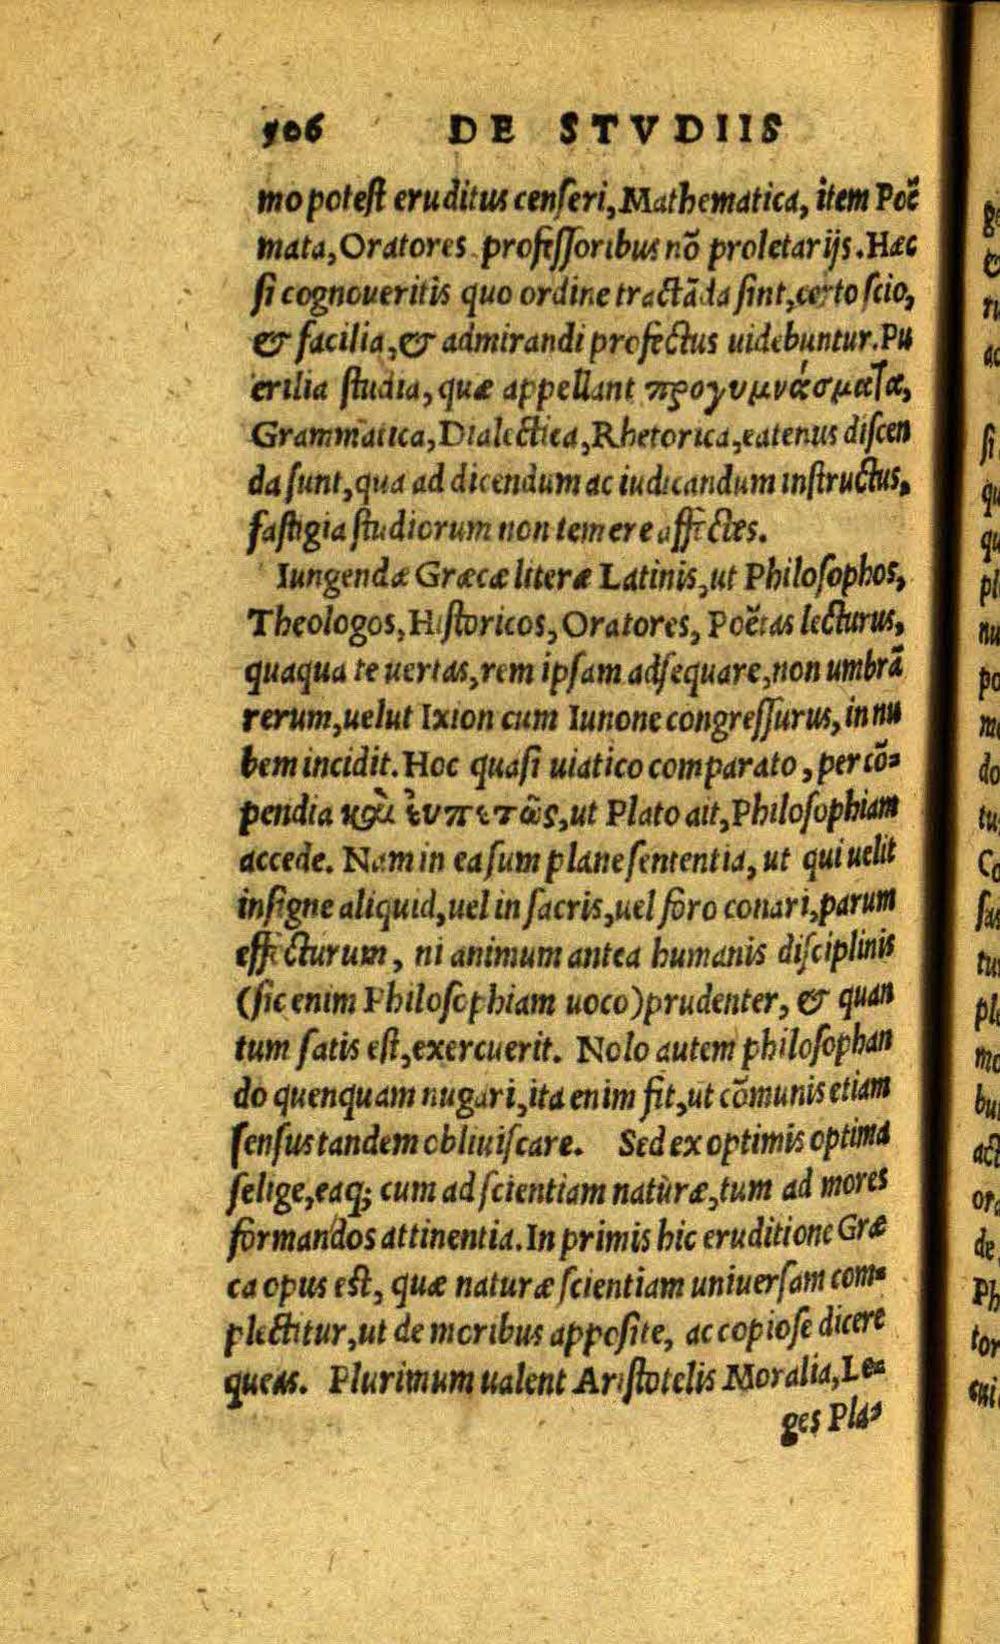 506 DE STVDIIS
mo potest eruditus censeri, Mathematica, item Poë
mata, Oratores professoribus nõ proletarijs. Hæc
si cognoueritis quo ordine tractãda sint, certo scio,
& facilia, & admirandi profectus uidebuntur. Pu
erilia studia, quæ appellant προγυμνάσματα,
Grammatica, Dialectica, Rhetorica, eatenus discen
da sunt, qua ad dicendum ac iudicandum instructus,
fastigia studiorum non temere affectes.
Iungendæ Græcæ literæ Latinis, ut Philosophos,
Theologos, Historicos, Oratores, Poëtas lecturus,
quaqua te uertas, rem ipsam adsequare, non umbrã
rerum, uelut Ixion cum Iunone congressurus, in nu
bem incidit. Hoc quasi uiatico comparato, per cõ-
pendia καὶ ἐυπετῶς, ut Plato ait, Philosophiam
accede. Nam in ea sum plane sententia, ut qui uelit
insigne aliquid, uel in sacris, uel foro conari, parum
effecturum, ni animum antea humanis disciplinis
(sic enim Philosophiam uoco) prudenter, & quan
tum satis est, exercuerit. Nolo autem philosophan
do quenquam nugari, ita enim fit, ut cõmunis etiam
sensus tandem obliuiscare. Sed ex optimis optima
selige, eaq; cum ad scientiam naturæ, tum ad mores
formandos attinentia. In primis hic eruditione Græ
ca opus est, quæ naturæ scientiam uniuersam com-
plectitur, ut de moribus apposite, ac copiose dicere
queas. Plurimum ualent Aristotelis Moralia, Le-
ges Pla-